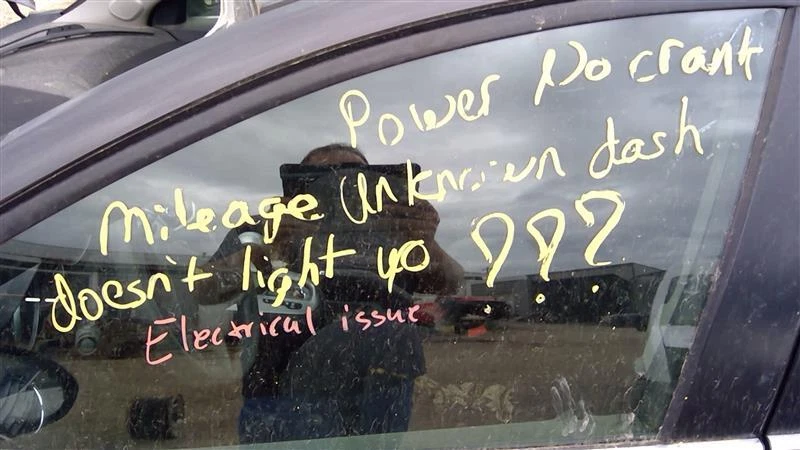 Power No crank
Mileage unknown dash
doesn't light up ???
Electrical issue